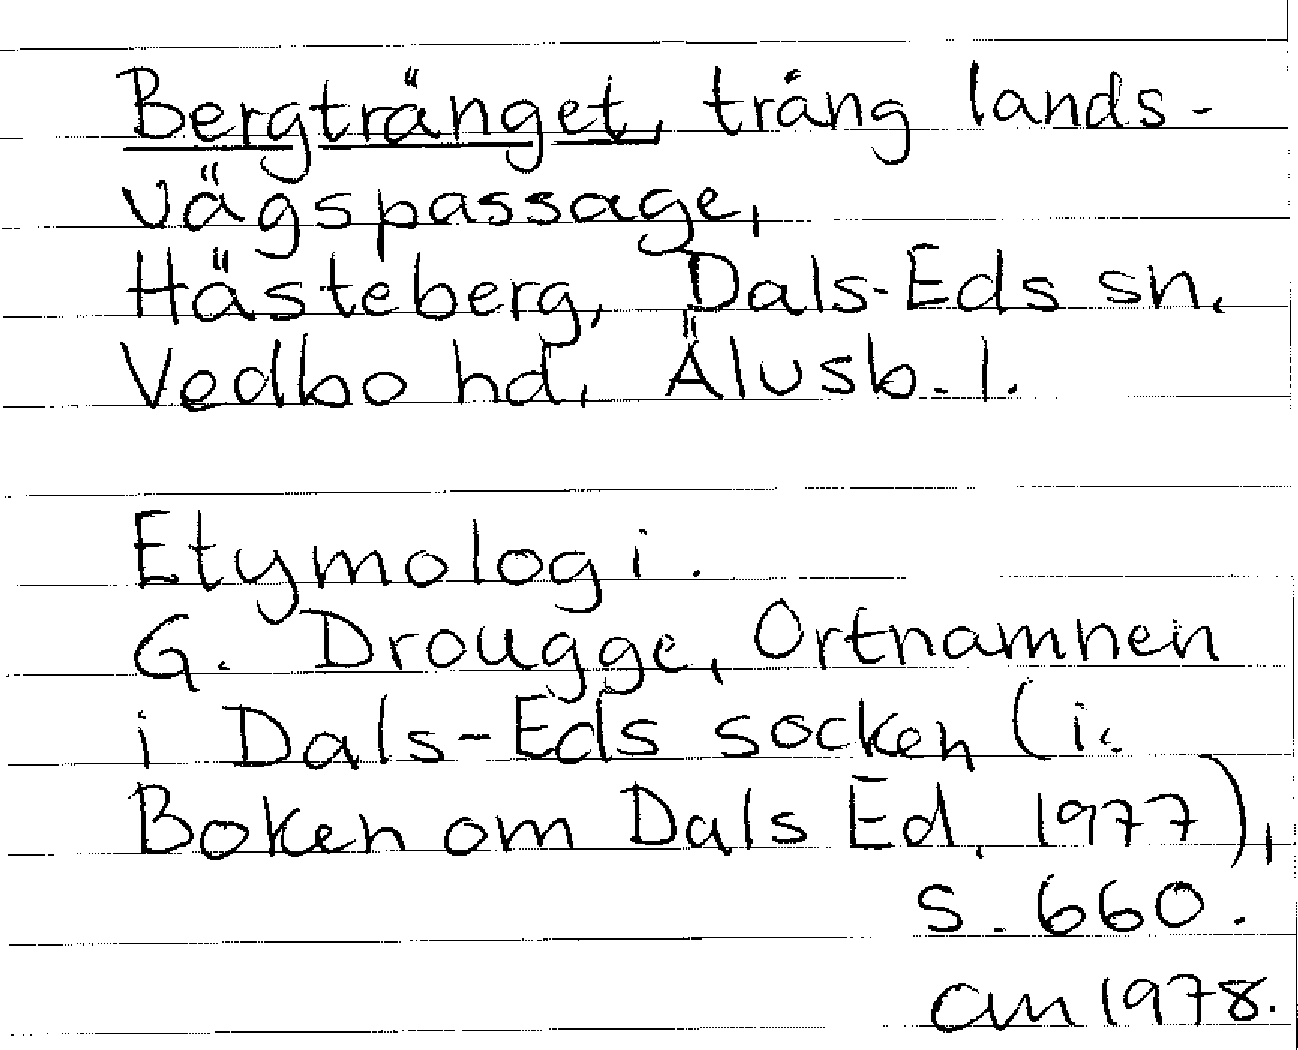 Bergtränget, trång lands-
vägspassage,
Hästeberg, Dals-Eds sn.
Vedbo hd, Älvsb. l.
Etymologi.
G. Drougge, Ortnamnen
i Dals-Eds socken (i:
Boken om Dals Ed, 1977),
s. 660.
am 1978.